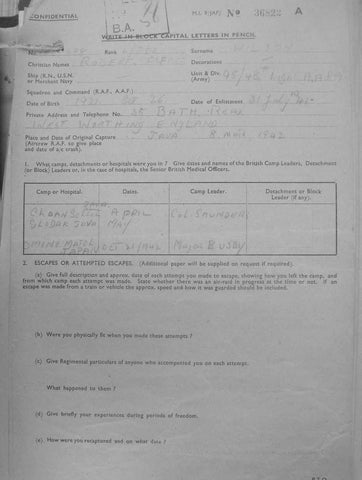 CONFIDENTIAL
B.A.
M.I. 9/JAP/ No 36823 A
WRITE IN BLOCK CAPITAL LETTERS IN PENCIL.
Rank
Surname
Christian Names ROBERT
Decorations
Ship (R.N., U.S.N. or Merchant Navy
Unit & Div. (Army)
Squadron and Command (R.A.F. A.A.F.)
Date of Birth 1921
Date of Enlistment
Private Address and Telephone No. 35 BATH ROAD
WEST WORTHING ENGLAND
Place and Date of Original Capture JAVA 8 1942
(Aircrew R.A.F. to give place
and date of a/c crash).
1. What camps, detachments or hospitals were you in? Give dates and names of the British Camp Leaders, Detachment
(or Block) Leaders or, in the case of hospitals, the Senior British Medical Officers.
Camp or Hospital. Dates. Camp Leader. Detachment or Block Leader (if any).
APRIL COL SAUNDERS
GLODAK JAVA MAY
JAPAN OCT 21/1942 MAJOR BUSBY
2. ESCAPES OR ATTEMPTED ESCAPES. (Additional paper will be supplied on request if required).
(a) Give full description and approx. date of each attempt you made to escape, showing how you left the camp, and
from which camp each attempt was made. State whether there was an air-raid in progress at the time or not. If an
escape was made from a train or vehicle the approx. speed and how it was guarded should be included.
(b) Were you physically fit when you made these attempts?
(c) Give Regimental particulars of anyone who accompanied you on each attempt.
What happened to them?
(d) Give briefly your experiences during periods of freedom.
(e) How were you recaptured and on what date?
P.T.O.